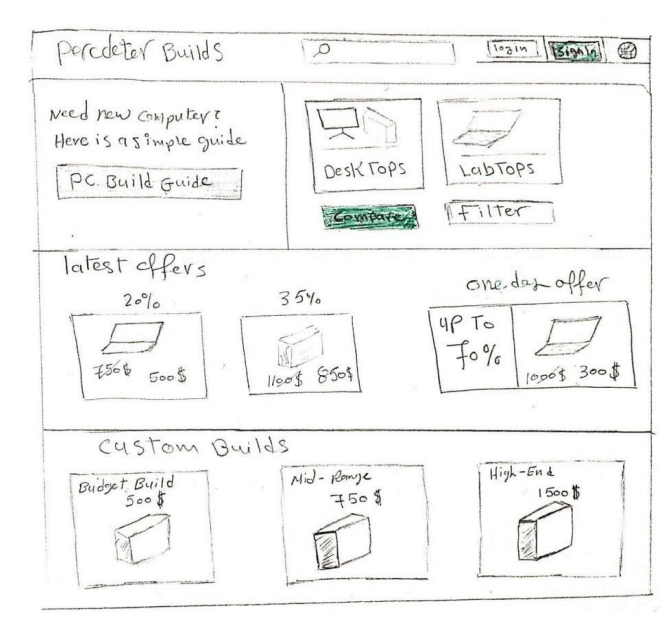 Percdeter Builds
login
SignIn
Need new computer?
Here is a simple guide
PC Build Guide
DeskTops
LabTops
Compare
Filter
latest offers
20%
750$ 500$
35%
1100$ 850$
one day offer
UP To
70%
1000$ 300$
Custom Builds
Budget Build
500$
Mid-Range
750$
High-End
1500$